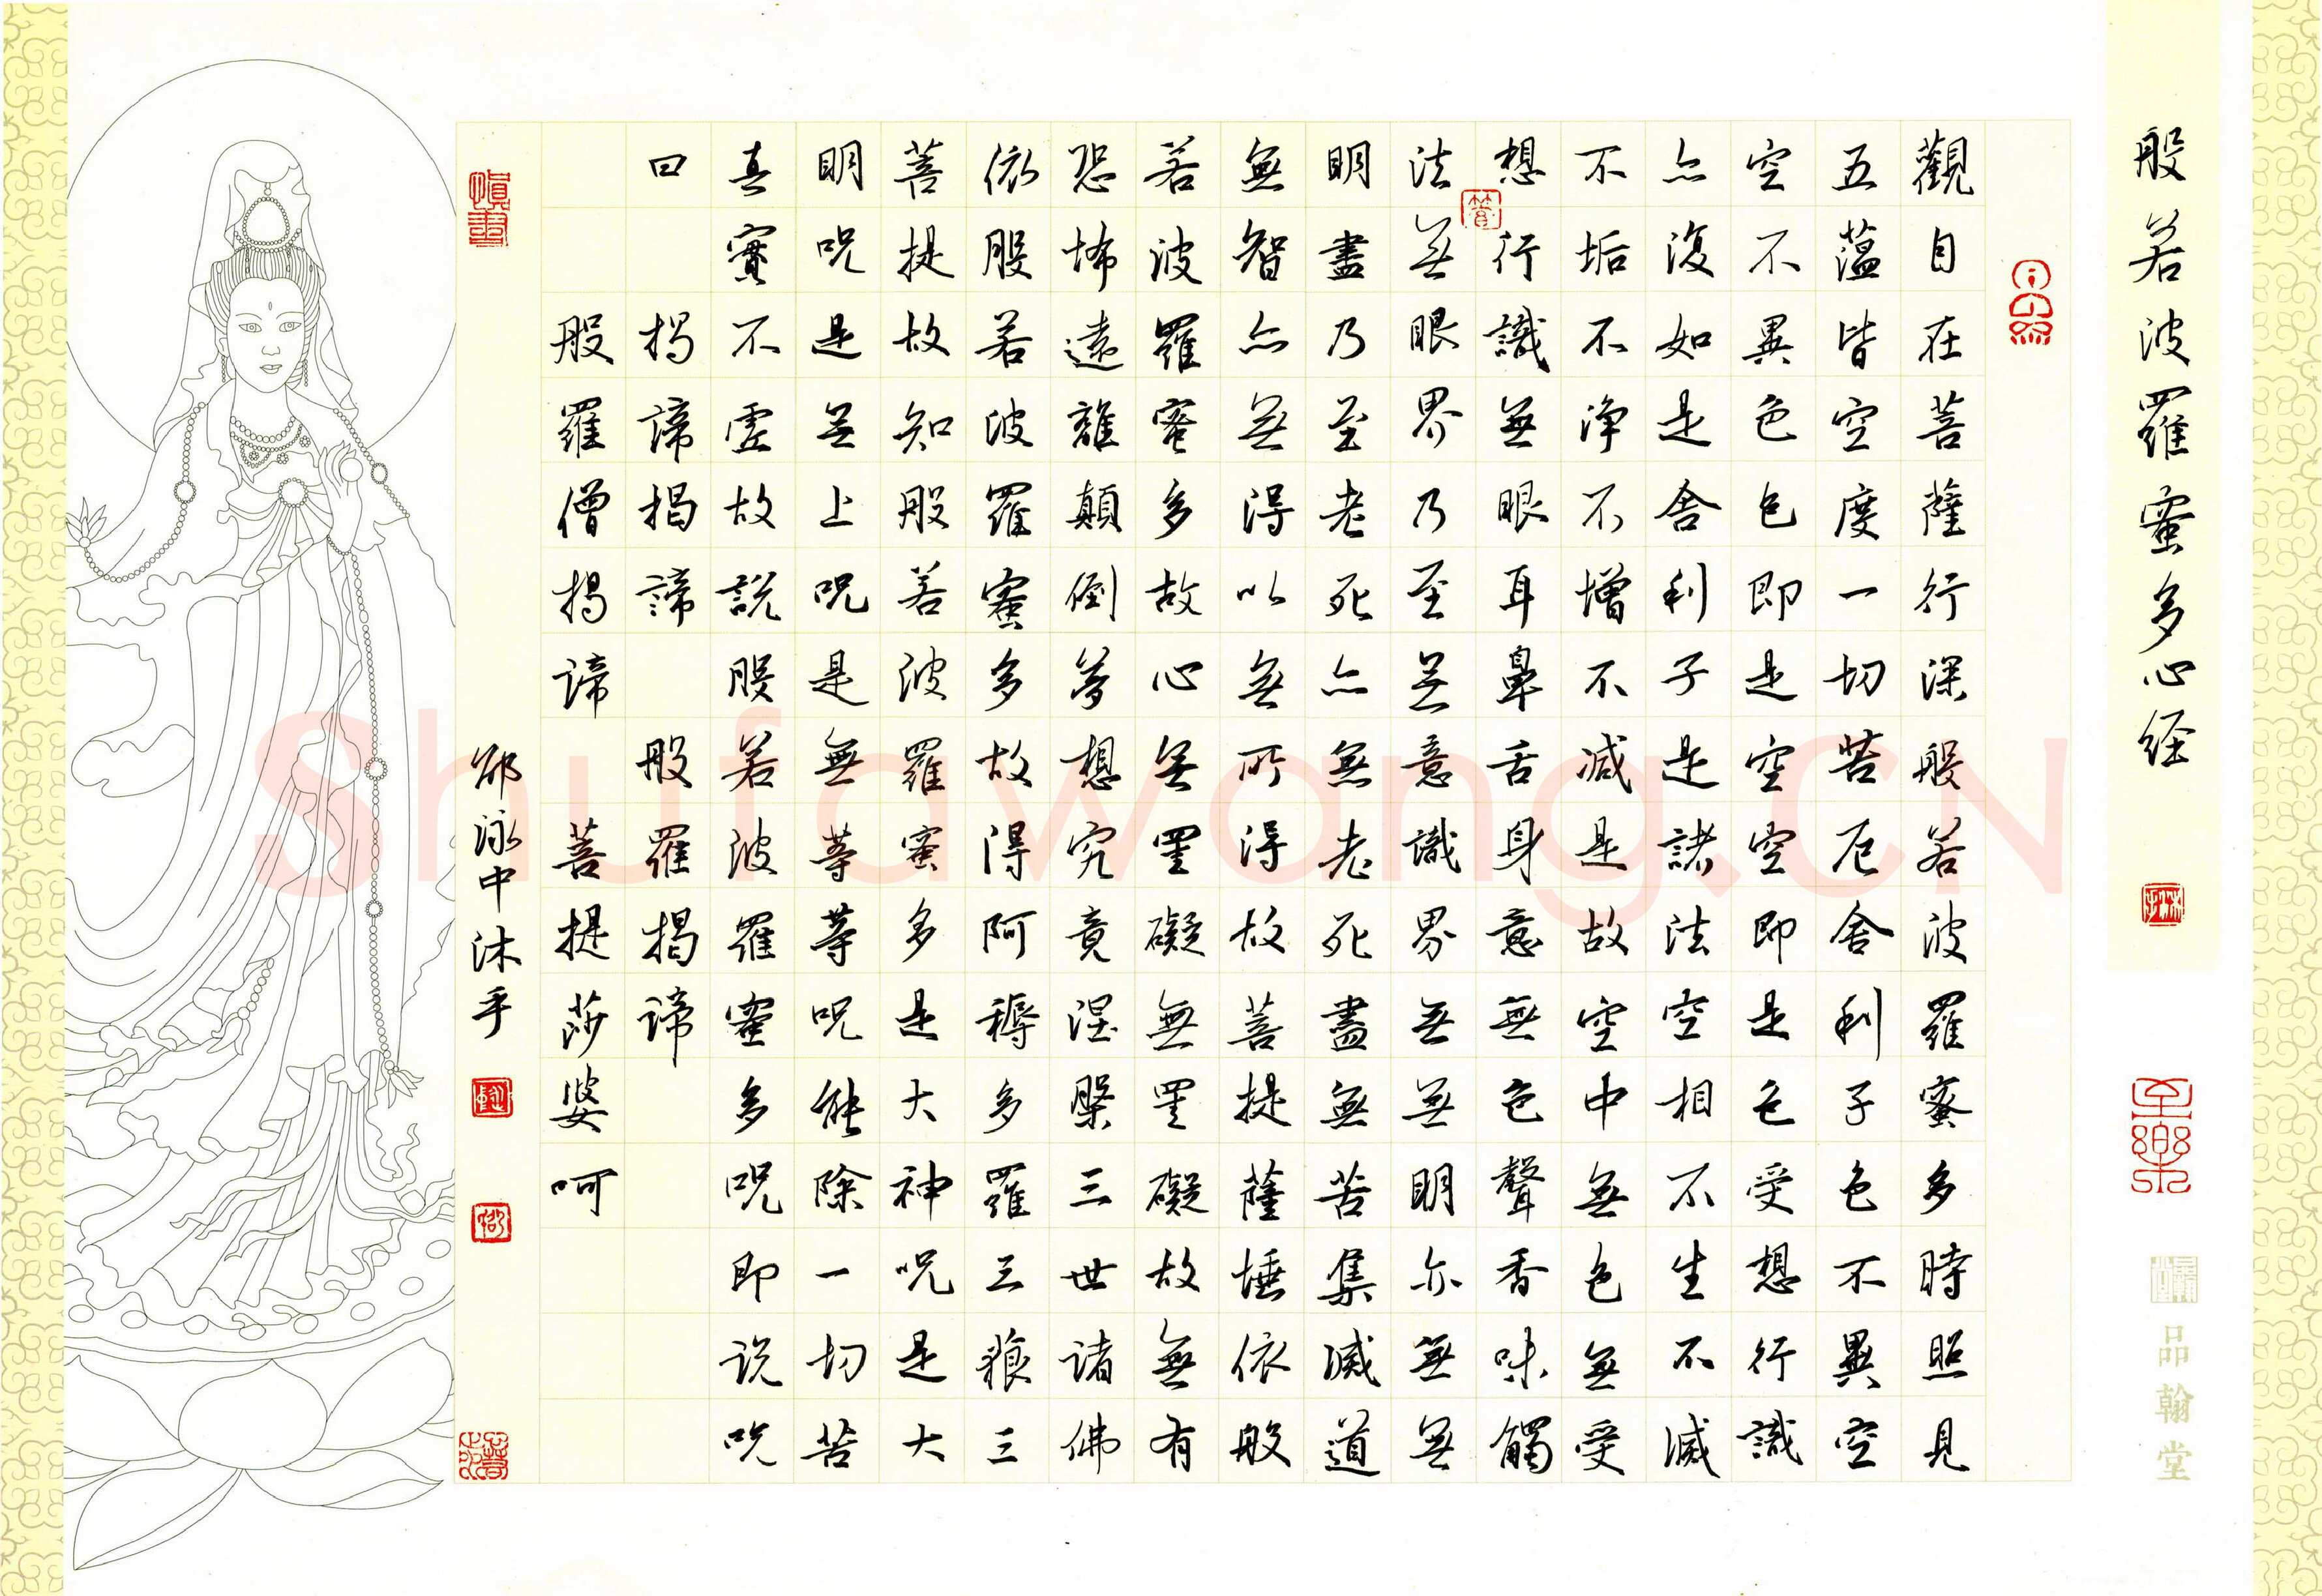 般若波羅蜜多心经
至樂
品翰堂
觀自在菩薩行深般若波羅蜜多時照見
五蘊皆空度一切苦厄舍利子色不異空
空不異色色即是空空即是色受想行識
亦復如是舍利子是諸法空相不生不滅
不垢不净不增不减是故空中無色無受
想行識無眼耳鼻舌身意無色聲香味觸
法無眼界乃至無意識界無無明亦無無
明盡乃至老死亦無老死盡無苦集滅道
無智亦無得以無所得故菩提薩埵依般
若波羅蜜多故心無罣礙無罣礙故無有
恐怖遠離顛倒夢想究竟涅槃三世諸佛
依般若波羅蜜多故得阿耨多羅三藐三
菩提故知般若波羅蜜多是大神咒是大
明咒是無上咒是無等等咒能除一切苦
真實不虛故說般若波羅蜜多咒即说咒
曰 揭諦揭諦 般羅揭諦
般羅僧揭諦 菩提莎婆呵
邵泳中沐手
Shufawang.CN